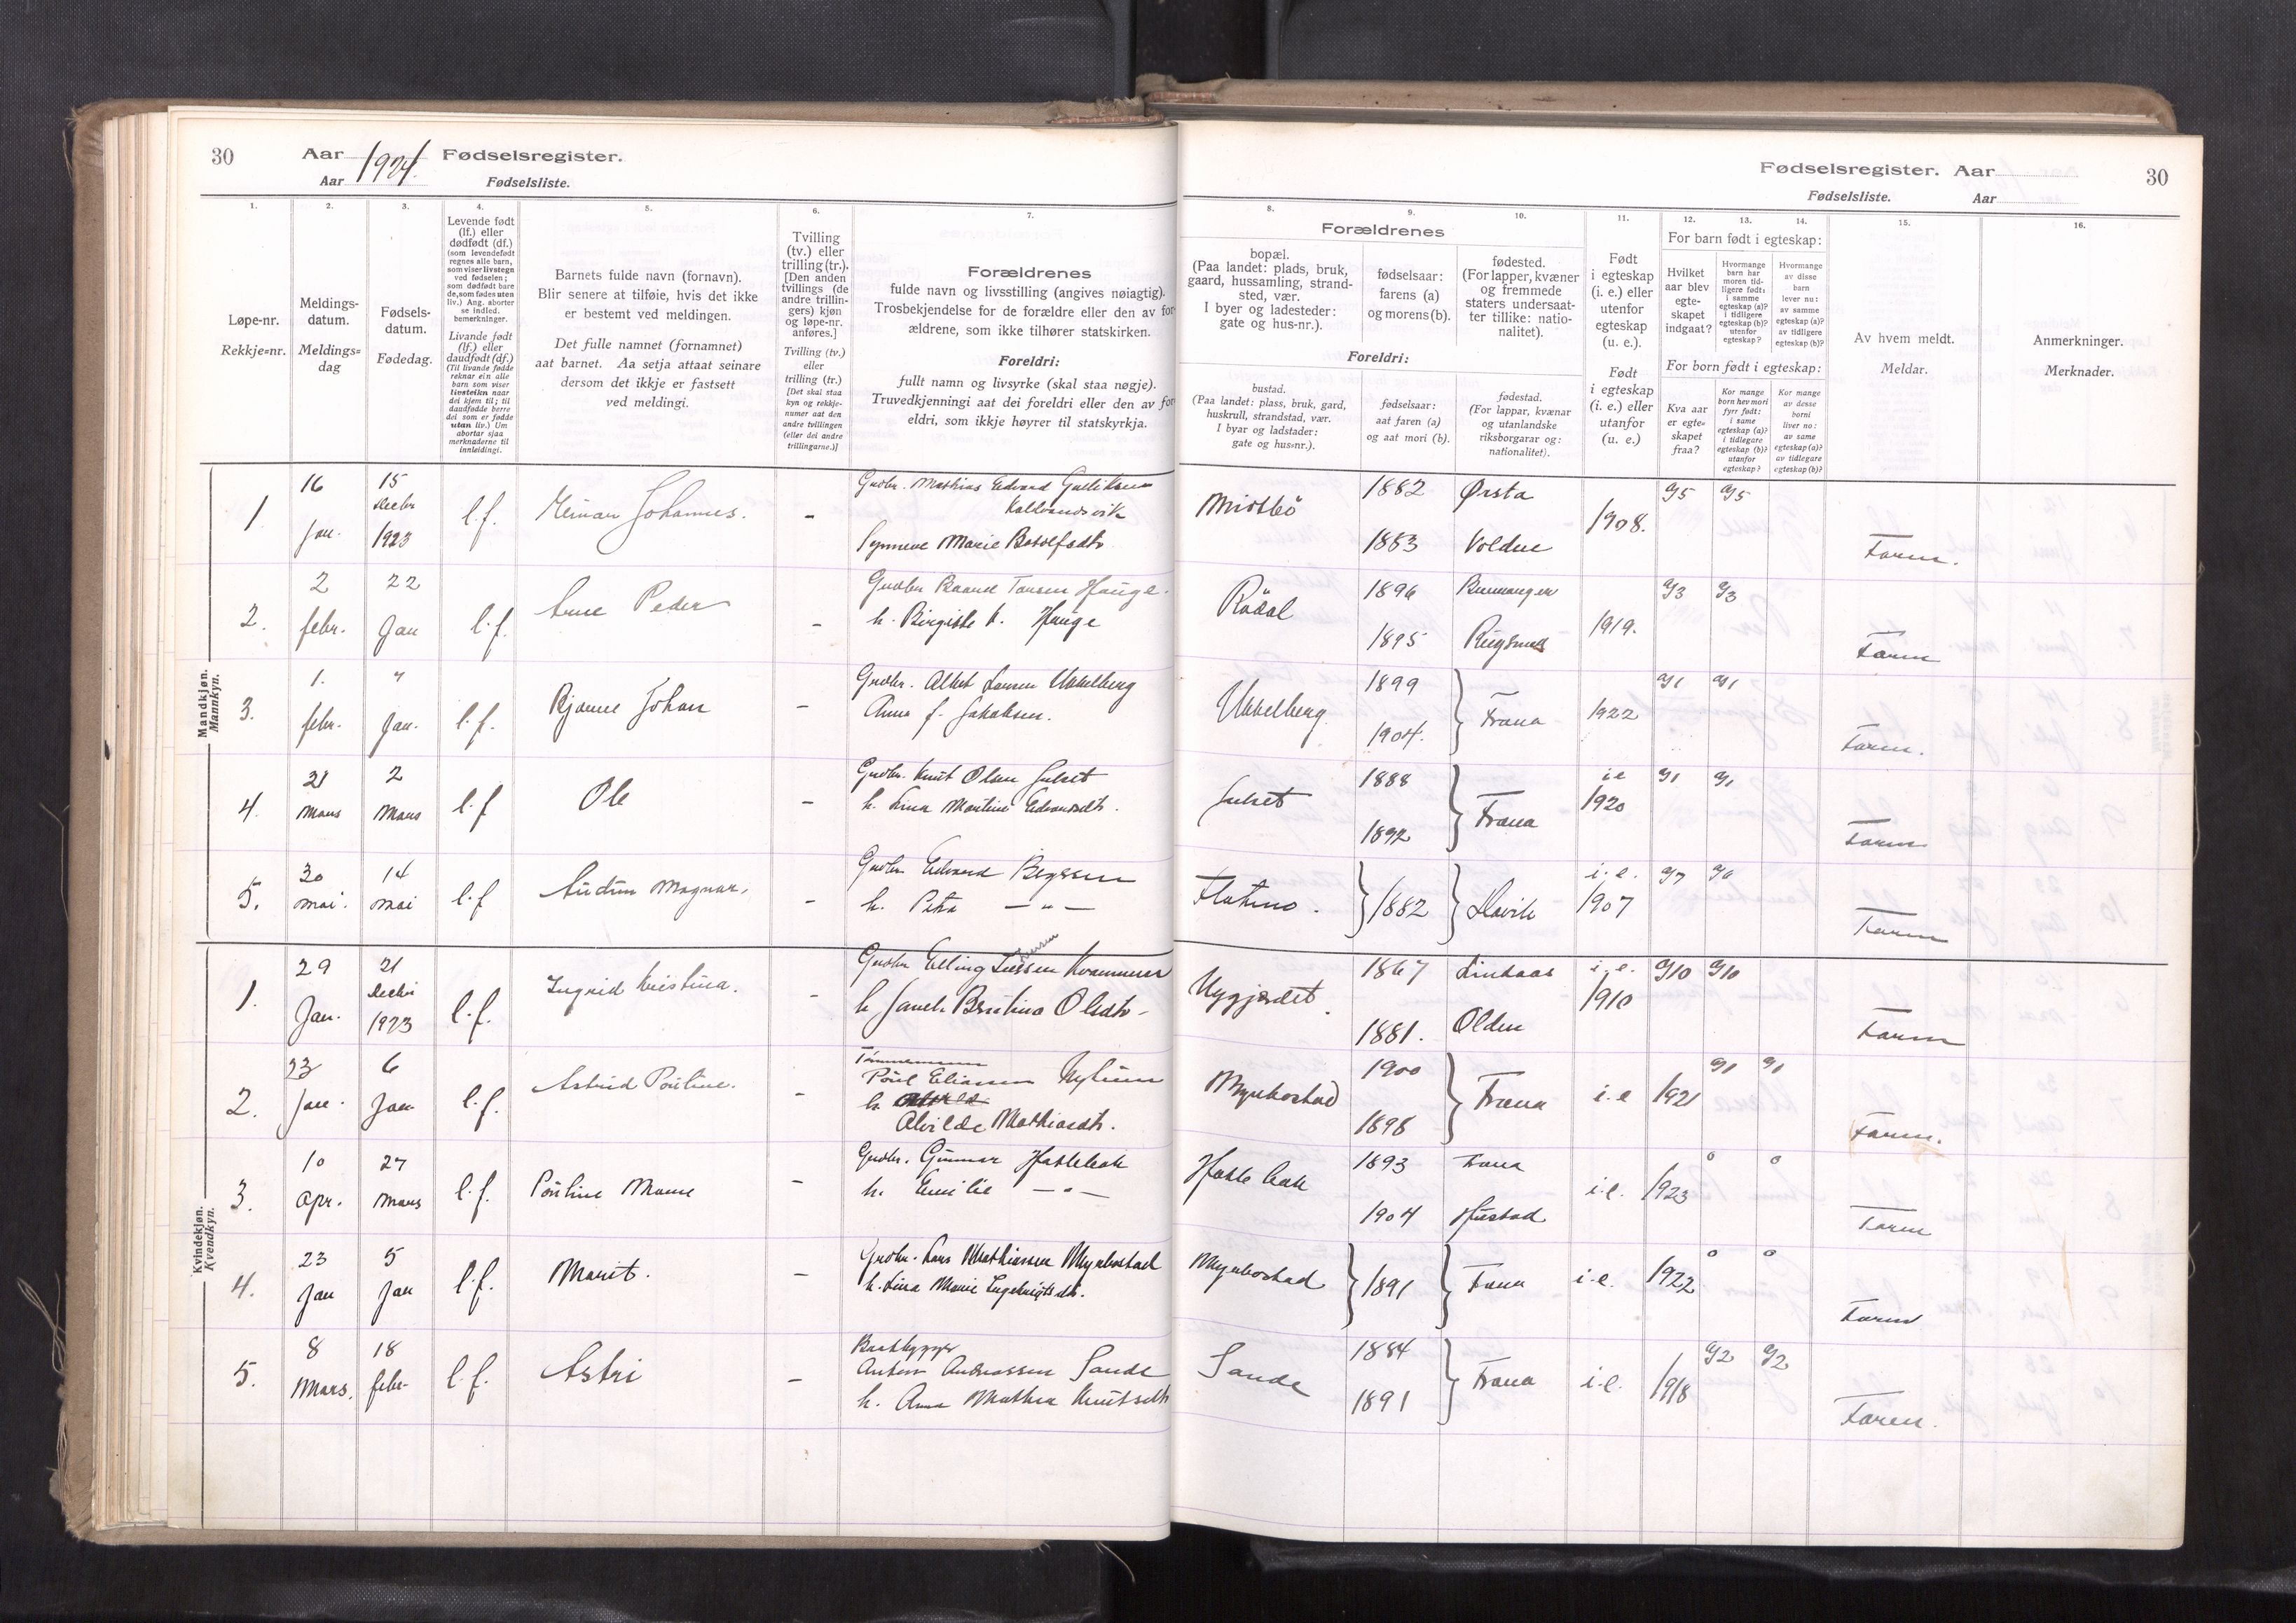 30
Aar 1924. Fødselsregister.
Aar Fødselsliste.
Fødselsregister. Aar 30
Fødselsliste. Aar
1. 2. 3. 4. 5. 6. 7.
Løpe-nr.
Rekkje=nr.
Meldings-
datum.
Meldings=
dag
Fødsels-
datum.
Fødedag.
Levende født
(lf.) eller
dødfødt (df.)
(som levendefødt
regnes alle barn,
som viser livstegn
ved fødselen;
som dødfødt bare
de, som fødes uten
liv.) Ang. aborter
se indled.
bemerkninger.
Livande født
(lf.) eller
daudfødt (df.)
(Til livande fødde
reknar ein alle
born som viser
livsteikn naar
dei kjem til; til
daudfødde berre
dei som er fødde
utan liv.) Um
abortar sjaa
merknaderne til
innleidingi.
Barnets fulde navn (fornavn).
Blir senere at tilføie, hvis det ikke
er bestemt ved meldingen.
Det fulle namnet (fornamnet)
aat barnet. Aa setja attaat seinare
dersom det ikkje er fastsett
ved meldingi.
Tvilling
(tv.) eller
trilling (tr.).
[Den anden
tvillings (de
andre trillin-
gers) kjøn
og løpe-nr.
anføres.]
Tvilling (tv.)
eller
trilling (tr.)
[Det skal staa
kyn og rekkje-
numer aat den
andre tvillingen
(eller dei andre
trillingarne.)]
Forældrenes
fulde navn og livsstilling (angives nøiagtig).
Trosbekjendelse for de forældre eller den av for-
ældrene, som ikke tilhører statskirken.
Foreldri:
fullt namn og livsyrke (skal staa nøgje).
Truvedkjenningi aat dei foreldri eller den av for
eldri, som ikkje høyrer til statskyrkja.
8. 9. 10. 11. 12. 13. 14. 15. 16.
Forældrenes
bopæl.
(Paa landet: plads, bruk,
gaard, hussamling, strand-
sted, vær.
I byer og ladesteder:
gate og hus-nr.).
fødselsaar:
farens (a)
og morens (b).
fødested.
(For lapper, kvæner
og fremmede
staters undersaat-
ter tillike: natio-
nalitet).
Foreldri:
bustad.
(Paa landet: plass, bruk, gard,
huskrull, strandstad, vær.
I byar og ladstader:
gate og hus=nr.).
fødselsaar:
aat faren (a)
og aat mori (b).
fødestad.
(For lappar, kvænar
og utanlandske
riksborgarar og:
nationalitet).
Født
i egteskap
(i. e.) eller
utenfor
egteskap
(u. e.).
Født
i egteskap
(i. e.) eller
utanfor
egteskap
(u. e.)
For barn født i egteskap:
Hvilket
aar blev
egte-
skapet
indgaat?
Hvormange
barn har
moren tid-
ligere født:
i samme
egteskap (a)?
i tidligere
egteskap (b)?
utenfor
egteskap?
Hvormange
av disse
barn
lever nu:
av samme
egteskap (a)?
av tidligere
egteskap (b)?
For born født i egteskap:
Kva aar
er egte=
skapet
fraa?
Kor mange
born hev mori
fyrr født:
i same
egteskap (a)?
i tidlegare
egteskap (b)?
utanfor
egteskap?
Kor mange
av desse
borni
liver no:
av same
egteskap (a)?
av tidlegare
egteskap (b)?
Av hvem meldt.
Meldar.
Anmerkninger.
Merknader.
Mandkjøn.
Mannkyn.
1. 16 Jan. 15 Decbr 1923 l.f. Johannes. - Gudbr. Mathias Edvard Gulliksen
Synneve Marie Botolfsdtr
Midtbö 1882 Ørsta 1908. a/5 a/5
1883 Volden Faren.
2. 2 febr. 22 Jan l.f. Arne Peder - Hauge
h. Birgitte K. Hauge
Rödal 1896 1919. a/3 a/3
1895 Rugsund Faren
3. 1. febr. " Jan. l.f. Bjarne Johan - Gudbr. Albert Larsen Ukkelberg
Anna f. Jakobsen.
Ukkelberg. 1899 Fræna 1922 a/1 a/1
1904. Faren.
4. 21 Mars 2 Mars l.f Ole - Gudbr. Knut Olsen Julset
h. Lina Martine Edvardsdtr.
Julset 1888 Fræna i.e 1920 a/1 a/1
1892 Faren
5. 30 mai. 14 mai l.f Audun Magnar. - Gudbr Edvard
h. Petra — " —
1882 i.e. 1907 Faren
Kvindekjøn.
Kvendkyn.
1. 29 Jan. 21 Decbr 1923 l.f. Ingrid Kristina. - Gudbr Elling
Olsdtr -
Nygjerdet. 1867 Lindaas i.e. 1910 a/10 a/10
1881. Olden Faren
2. 23 Jan. 6 Jan l.f. Astrid Pouline. - Tømmermann
Poul Eliassen Nylund
h.
Alvilde Mathiasdtr.
Myrbostad 1900 Fræna i.e 1921 a/1 a/1
1898 Faren.
3. 10 Apr. 27 Mars l.f. Pouline - Gudbr. Gunnar
h. Emilie — " —
1893 Fræna i.e. 1923 0 0
1904 Hustad Faren
4. 23 Jan 5 Jan l.f. Marit. - Gudbr. Lars Mathiassen Myrbostad
h. Lina Marie Ingebrigtsdtr.
Myrbostad 1891 Fræna i.e. 1922 0 0
Faren
5. 8 Mars. 18 febr l.f. Astri - Baatbygger
Anton Andreassen Sande
h. Anna Mathea Knutsdtr
Sande 1884 Fræna i.e. 1918 a/2 a/2
1891 Faren.